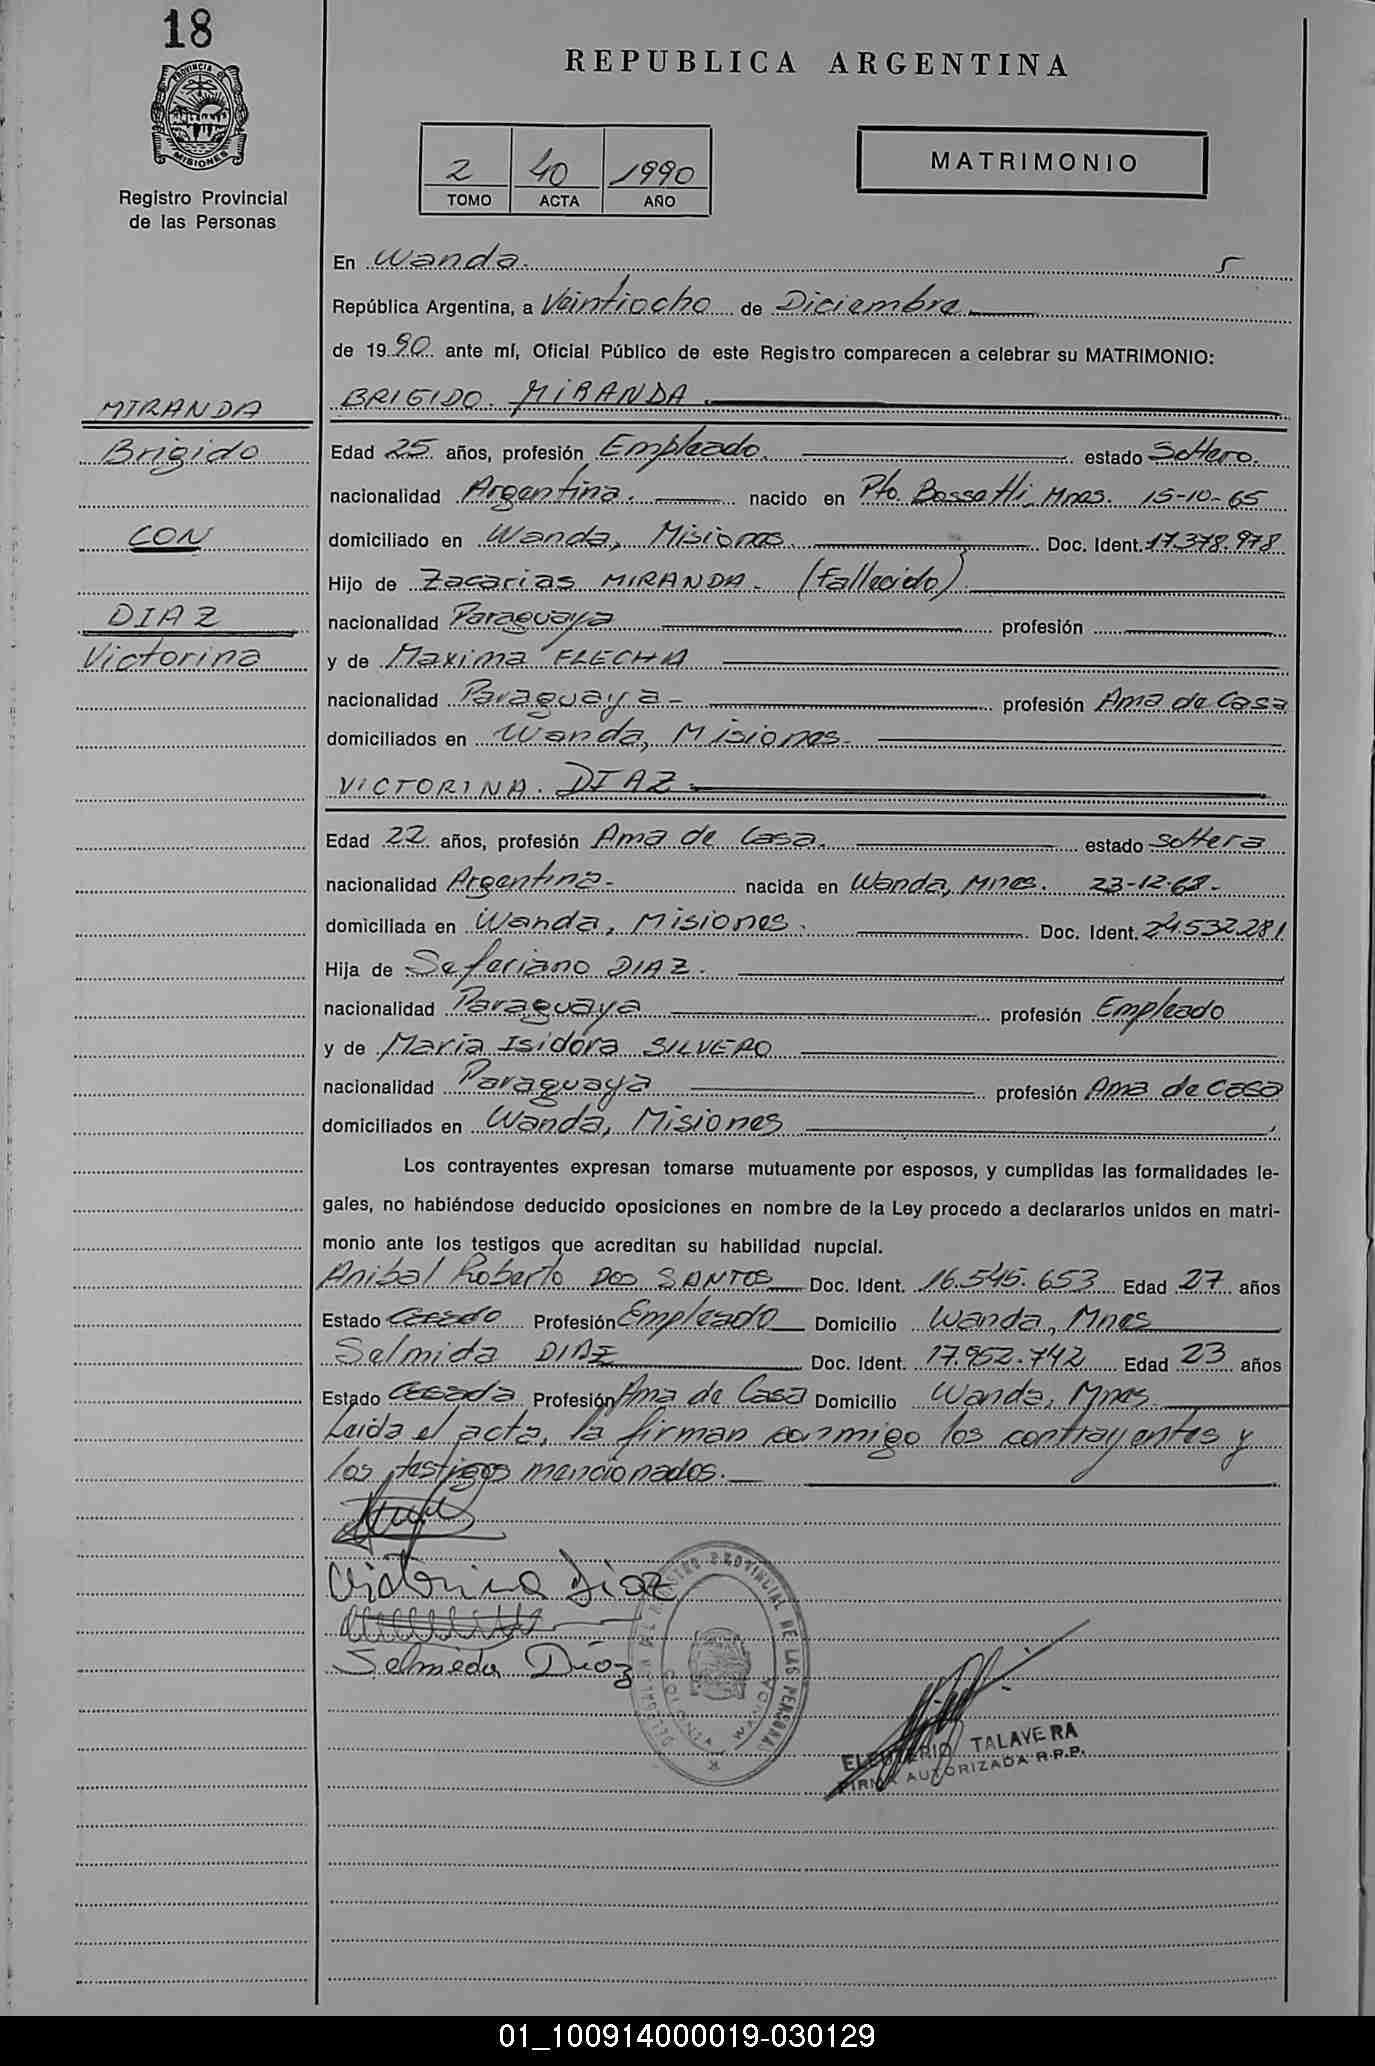 18
PROVINCIA DE
MISIONES
Registro Provincial
de las Personas
REPUBLICA ARGENTINA
2 40 1990
TOMO ACTA AÑO
MATRIMONIO
En Wanda.
República Argentina, a Veintiocho de Diciembre
de 1990 ante mí, Oficial Público de este Registro comparecen a celebrar su MATRIMONIO:
BRIGIDO MIRANDA
MIRANDA
Brigido
CON
DIAZ
Victorina
Edad 25 años, profesión Empleado estado Soltero.
nacionalidad Argentina. nacido en Pto. Bossetti, Mnes. 15-10-65
domiciliado en Wanda, Misiones Doc. Ident. 17.378.978
Hijo de Zacarias MIRANDA. (Fallecido)
nacionalidad Paraguaya profesión
y de Maxima FLECHA
nacionalidad Paraguaya - profesión Ama de Casa
domiciliados en Wanda, Misiones.
VICTORINA. DIAZ
Edad 22 años, profesión Ama de Casa. estado Soltera
nacionalidad Argentina. nacida en Wanda, Mnes. 23-12-68-
domiciliada en Wanda, Misiones. Doc. Ident. 24.532.281
Hija de Seferiano DIAZ.
nacionalidad Paraguaya profesión Empleado
y de Maria Isidora SILVERO
nacionalidad Paraguaya profesión Ama de casa
domiciliados en Wanda, Misiones
Los contrayentes expresan tomarse mutuamente por esposos, y cumplidas las formalidades le-
gales, no habiéndose deducido oposiciones en nombre de la Ley procedo a declararlos unidos en matri-
monio ante los testigos que acreditan su habilidad nupcial.
Anibal Roberto DOS SANTOS Doc. Ident. 16.545.653 Edad 27 años
Estado Casado Profesión Empleado Domicilio Wanda, Mnes
Selmida DIAZ Doc. Ident. 17.952.742 Edad 23 años
Estado Casada Profesión Ama de Casa Domicilio Wanda, Mnes.
Leida el acta, la firman conmigo los contrayentes y
los testigos mencionados.
Victorina Diaz
Selmida Diaz
REGISTRO PROVINCIAL DE LAS PERSONAS
COLONIA WANDA
ELEUTERIO TALAVERA
FIRMA AUTORIZADA R.P.P.
01_100914000019-030129